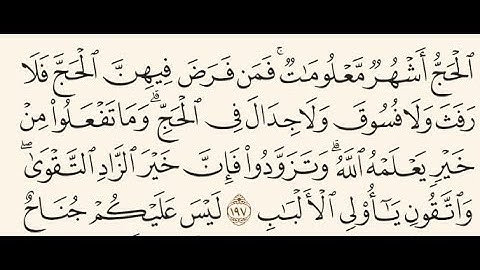 ٱلْحَجُّ أَشْهُرٌ مَّعْلُومَٰتٌ ۚ فَمَن فَرَضَ فِيهِنَّ ٱلْحَجَّ فَلَا
رَفَثَ وَلَا فُسُوقَ وَلَا جِدَالَ فِى ٱلْحَجِّ ۗ وَمَا تَفْعَلُوا۟ مِنْ
خَيْرٍ يَعْلَمْهُ ٱللَّهُ ۗ وَتَزَوَّدُوا۟ فَإِنَّ خَيْرَ ٱلزَّادِ ٱلتَّقْوَىٰ ۖ
وَٱتَّقُونِ يَٰٓأُو۟لِى ٱلْأَلْبَٰبِ ١٩٧ لَيْسَ عَلَيْكُمْ جُنَاحٌ